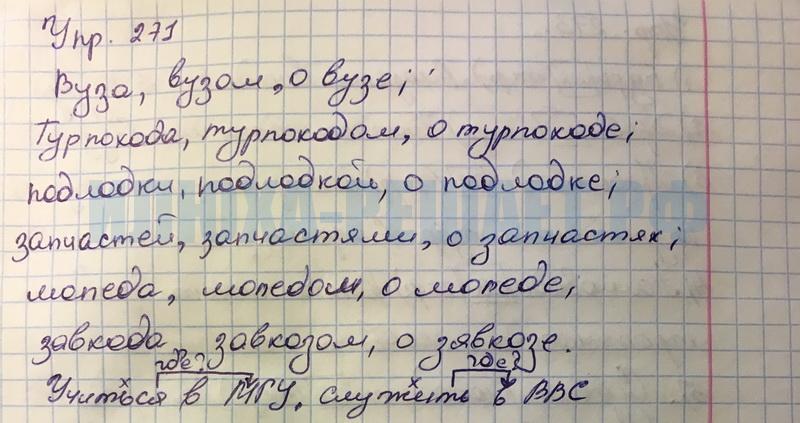 Упр. 271
Вуза, вузом, о вузе;
Турпохода, турпоходом, о турпоходе;
подлодки, подлодкой, о подлодке;
запчастей, запчастями, о запчастях;
мопеда, мопедом, о мопеде;
завхода, завхозом, о зявхозе.
где? где?
Учиться в МГУ, служить в ВВС